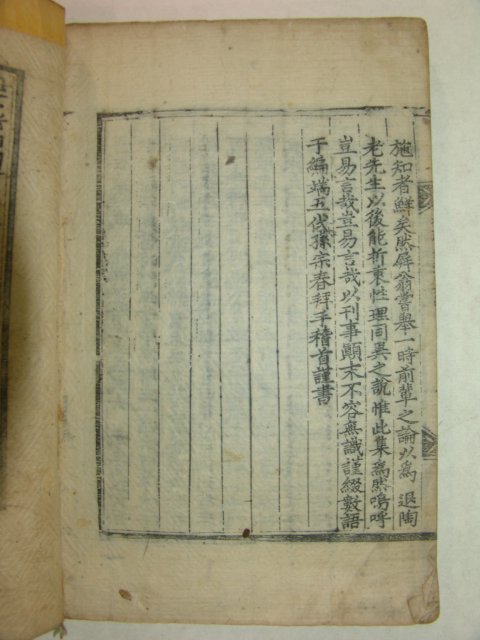 施知者鮮矣然屛翁嘗舉一時前輩之論以爲 退陶
老先生以後能折衷性理同異之說惟此集爲然嗚呼
豈易言哉豈易言哉以刊事顚末不容無識謹綴數語
于編端五代孫宗春拜手稽首謹書